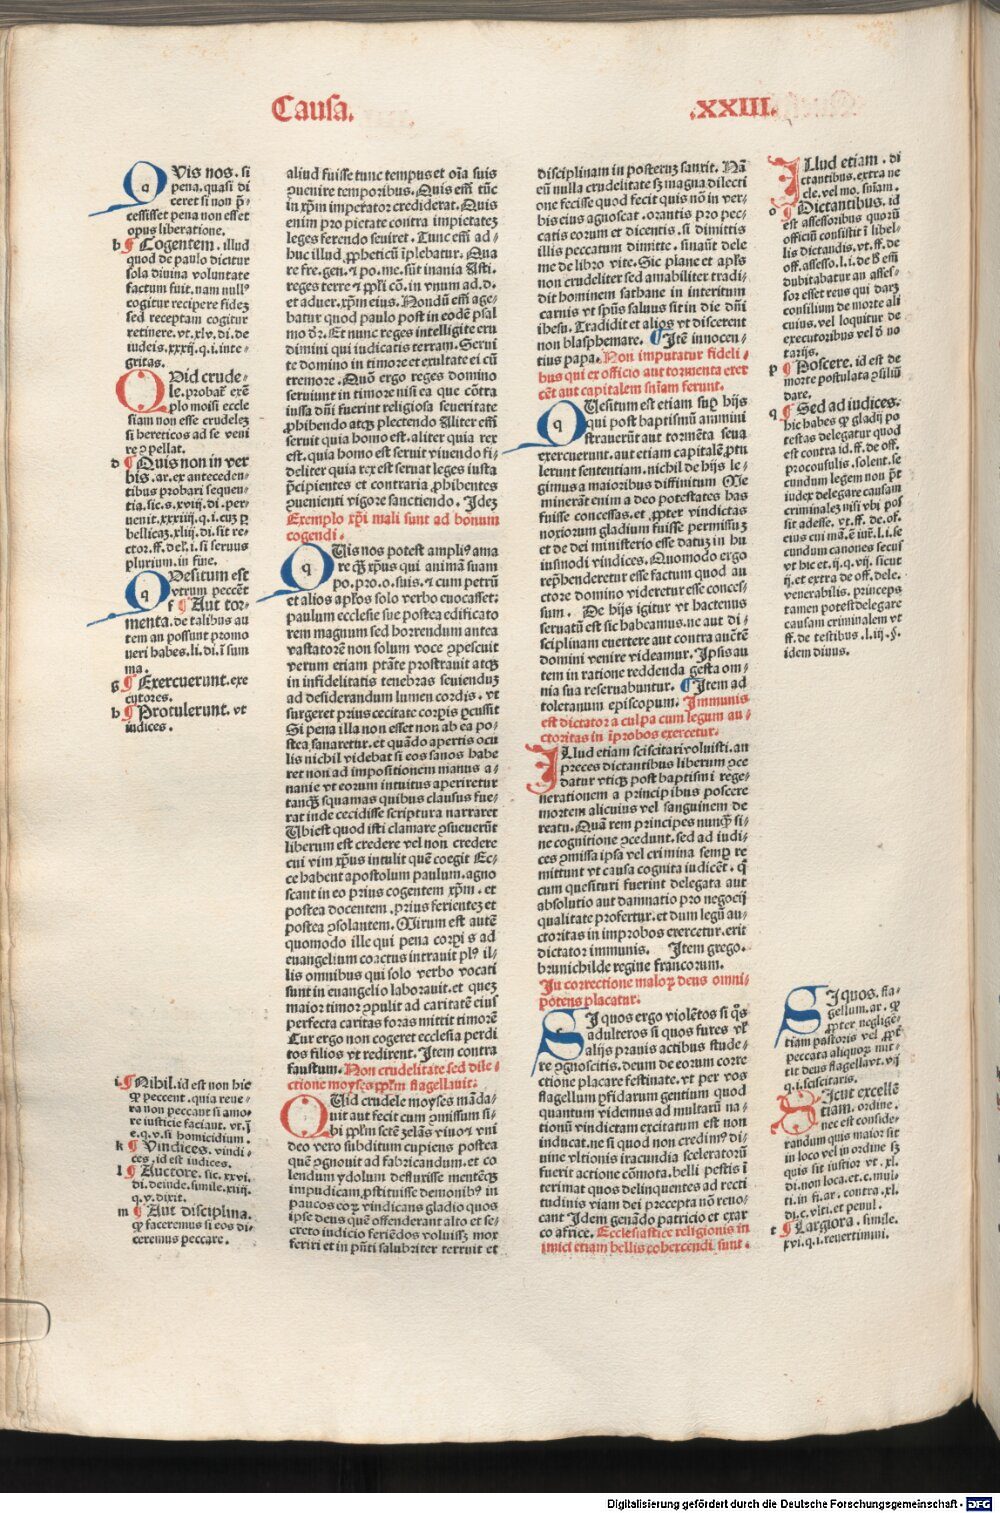 Causa.
.XXIII.
QVis nos. si
pena. quasi di
ceret si non p̄-
cessisset pena non esset
opus liberatione.
b ¶ Cogentem. illud
quod de paulo dicitur
sola diuina voluntate
factum fuit. nam nullꝰ
cogitur recipere fidez
sed receptam cogitur
retinere. vt. xlv. di. de
iudeis. xxxij. q. i. inte-
gritas.
QVid crude-
le. probat̄ exē
plo moisi eccle
siam non esse crudelez
si hereticos ad se veni
re ꝯpellat.
d ¶ Quis non in ver
bis. ar. ex anteceden-
tibus probari sequen-
tia. sic. s. xviij. di. per-
uenit. xxxiiij. q. i. cuz p
bellicaz. xliij. di. sit re-
ctor. ff. del'. i. si seruus
plurium. in fine.
QVesitum est
vtrum peccēt
f ¶ Aut tor-
menta. de talibus au
tem an possunt promo
ueri habes. li. di. i sum
ma.
g ¶ Exercuerunt. exe
cutores.
h ¶ Protulerunt. vt
iudices.
i ¶ Nihil. id est non hic
ꝙ peccent. quia reue-
ra non peccant si amo-
re iusticie faciant. vt. ī
e. q. v. si homicidium.
k ¶ Vindices. vindi-
ces. id est iudices.
l ¶ Auctore. sic. xxvi.
di. deinde. simile. xiiij.
q. v. dixit.
m ¶ Aut disciplina.
ꝙ faceremus si eos di-
ceremus peccare.
aliud fuisse tunc tempus et oīa suis
ꝯuenire temporibus. Quis em̄ tūc
in xp̄m imperator crediderat. Quis
enim pro pietate contra impietatez
leges ferendo seuiret. Tunc em̄ ad-
huc illud ꝓpheticū īplebatur. Qua
re fre. gen. ⁊ po. me. sūt inania Asti.
reges terre ⁊ pp̄li cō. in vnum ad. d.
et aduer. xp̄m eius. Nondū em̄ age-
batur quod paulo post in eodē psal
mo dr̄. Et nunc reges intelligite eru
dimini qui iudicatis terram. Serui
te domino in timore et exultate ei cū
tremore. Quō ergo reges domino
seruiunt in timore nisi ea que cōtra
iussa dn̄i fuerint religiosa seueritate
ꝓhibendo atqꝫ plectendo Aliter em̄
seruit quia homo est. aliter quia rex
est. quia homo est seruit viuendo fi-
deliter quia rex est seruat leges iusta
p̄cipientes et contraria ꝓhibentes
ꝯuenienti vigore sanctiendo. Idez
Exemplo xp̄i mali sunt ad bonum
cogendi.
QVis nos potest ampliꝰ ama
re qꝫ xp̄us qui animā suam
po. pro. o. suis. ⁊ cum petrū
et alios ap̄los solo verbo euocasset:
paulum ecclesie sue postea edificato
rem magnum sed horrendum antea
vastatorē non solum voce ꝯpescuit
verum etiam ptāte prostrauit atqꝫ
in infidelitatis tenebras seuienduz
ad desiderandum lumen cordis. vt
surgeret prius cecitate corpis pcussit
Si pena illa non esset non ab ea po-
stea sanaretur. et quādo apertis ocu
lis nichil videbat si eos sanos habe
ret non ad impositionem manus a-
nanie vt eorum intuitus aperiretur
tancꝫ squamas quibus clausus fue-
rat inde cecidisse scriptura narraret
Ubi est quod isti clamare ꝯsueuerūt
liberum est credere vel non credere
cui vim xp̄us intulit quē coegit Ec-
ce habent apostolum paulum. agno
scant in eo prius cogentem xp̄m. et
postea docentem. prius ferientez et
postea ꝯsolantem. Mirum est autē
quomodo ille qui pena corpis ad
euangelium coactus intrauit plꝰ il-
lis omnibus qui solo verbo vocati
sunt in euangelio laborauit. et quez
maior timor ꝯpulit ad caritatē eius
perfecta caritas foras mittit timorē
Cur ergo non cogeret ecclesia perdi
tos filios vt redirent. Item contra
faustum. Non crudelitate sed dile-
ctione moyses pp̄lm flagellauit.
QVid crudele moyses māda-
uit aut fecit cum ꝯmissum si-
bi pp̄lm sctē zelās viuoꝛ vni
deo vero subditum cupiens postea
quē ꝯgnouit ad fabricandum. et co
lendum ydolum defluxisse mentēqꝫ
impudicam ꝓstituisse demonibꝰ in
paucos eoꝝ vindicans gladio quos
ipse deus quē offenderant alto et se-
creto iudicio feriēdos voluissꝫ mox
feriri et in pn̄ti salubriter terruit et
disciplinam in posteruꝫ sanxit. Nā
eū nulla crudelitate sꝫ magna dilecti
one fecisse quod fecit quis nō in ver-
bis eius agnoscat. orantis pro pec-
catis eorum et dicentis. si dimittis
illis peccatum dimitte. sinaūt dele
me de libro vite. Sic plane et apl̄s
non crudeliter sed amabiliter tradi-
dit hominem sathane in interitum
carnis vt sp̄us saluus sit in die dn̄i
ihesu. Tradidit et alios vt discerent
non blasphemare. ¶ Itē innocen-
tius papa. Non imputatur fideli-
bus qui ex officio aut tormenta exer
cēt aut capitalem sn̄iam ferunt.
QVesitum est etiam suꝑ hijs
qui post baptismū ammini
strauerūt aut tormēta seua
exercuerunt. aut etiam capitalē ꝓtu
lerunt sententiam. nichil de hijs le-
gimus a maioribus diffinitum Me
minerāt enim a deo potestates has
fuisse concessas. et ꝓpter vindictas
noxiorum gladium fuisse permissuꝫ
et de dei ministerio esse datuꝫ in hu
iusmodi vindices. Quomodo ergo
rep̄henderetur esse factum quod au
ctore domino videretur esse conces-
sum. De hijs igitur vt hactenus
seruatū est sic habeamus. ne aut di-
sciplinam euertere aut contra auctē
domini venire videamur. Ipsis au
tem in ratione reddenda gesta om-
nia sua reseruabuntur. ¶ Item ad
toletanum episcopum. Immunis
est dictator a culpa cum legum au-
ctoritas in īprobos exercetur.
ILlud etiam sciscitari voluisti. an
preces dictantibus liberum ꝯce
datur vtiqꝫ post baptismi rege-
nerationem a principibus poscere
mortem alicuius vel sanguinem de
reatu. Quā rem principes nuncꝫ si-
ne cognitione ꝯcedunt. sed ad iudi-
ces ꝯmissa ipsa vel crimina semꝑ re
mittunt vt causa cognita iudicēt. q̄
cum quesituri fuerint delegata aut
absolutio aut damnatio pro negocij
qualitate profertur. et dum legū au-
ctoritas in improbos exercetur. erit
dictator immunis. Item grego.
brunichilde regine francorum.
In correctione maloꝝ deus omni-
potens placatur.
SI quos ergo violētos si qͦs
adulteros si quos fures vl̄
alijs prauis actibus stude-
re ꝯgnoscitis. deum de eorum corre
ctione placare festinate. vt per vos
flagellum pfidarum gentium quod
quantum videmus ad multarū na-
tionū vindictam excitatum est non
inducat. ne si quod non credimꝰ di-
uine vltionis iracundia sceleratorū
fuerit actione cōmota. belli pestis ī
terimat quos delinquentes ad recti
tudinis viam dei precepta nō reuo-
cant Idem genādo patricio et exar
co africe. Ecclesiastice religionis in
imici etiam bellis cohercendi sunt.
ILlud etiam. di
ctantibus. extra ne
cle. vel mo. sn̄iam.
o ¶ Dictantibus. id
est assessoribus quorū
officiū consistit ī libel-
lis dictandis. vt. ff. de
off. assesso. l. i. de h̄ em̄
dubitabatur an asses-
sor esset reus qui darꝫ
consilium de morte ali
cuius. vel loquitur de
executoribus vel d̄ no
tarijs.
p ¶ Poscere. id est de
morte postulata ꝯsiliū
dare.
q ¶ Sed ad iudices.
hic habes ꝙ gladij po
testas delegatur quod
est contra id. ff. de off.
proconsulis. solent. se
cundum legem non pt̄
iudex delegare causam
criminalez nisi vbi pos
sit adesse. vt. ff. de. of.
eius cui mā. ē iur̄. l. i. se
cundum canones secus
vt hic et. ij. q. vij. sicut
ij. et extra de off. dele.
venerabilis. princeps
tamen potest delegare
causam criminalem vt
ff. de testibus. l. iij. §.
idem diuus.
SI quos. fla-
gellum. ar. ꝙ
ꝓpter neglige-
tiam pastoris vel ꝓpt̄
peccata aliquoꝝ mit-
tit deus flagella. vt. vij
q. i. sciscitaris.
SIcut excellē
tiam. ordine.
nec est conside-
randum quis maior sit
in loco vel in ordine sꝫ
quis sit iustior vt. xl.
di. non loca. et. c. mul-
ti. in fi. ar. contra. xl.
di. c. vlti. et penul.
t ¶ Largiora. simile.
xvi. q. i. reuertimini.
Digitalisierung gefördert durch die Deutsche Forschungsgemeinschaft - DFG